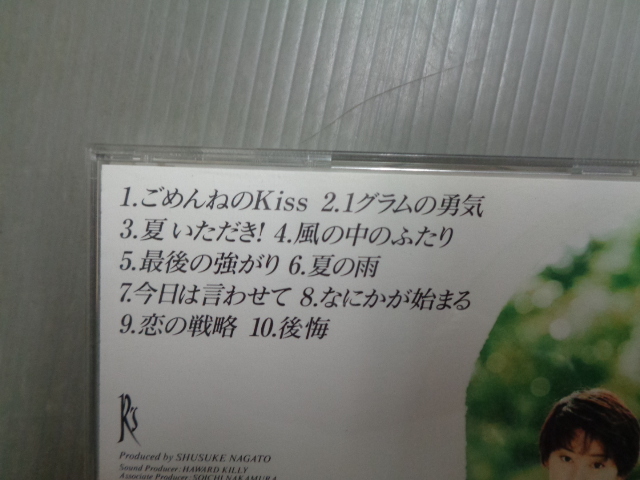 1.ごめんねのKiss 2.1グラムの勇気
3.夏いただき! 4.風の中のふたり
5.最後の強がり 6.夏の雨
7.今日は言わせて 8.なにかが始まる
9.恋の戦略 10.後悔
R's
Produced by SHUSUKE NAGATO
Sound Producer: HAWARD KILLY
Associate Producer: SOICHI NAKAMURA